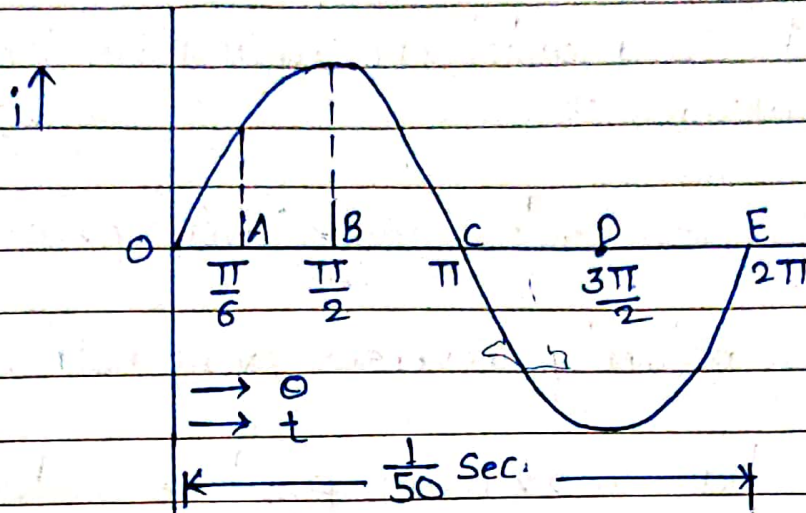 i↑
O A B C D E
π/6 π/2 π 3π/2 2π
→ θ
→ t
1/50 Sec.